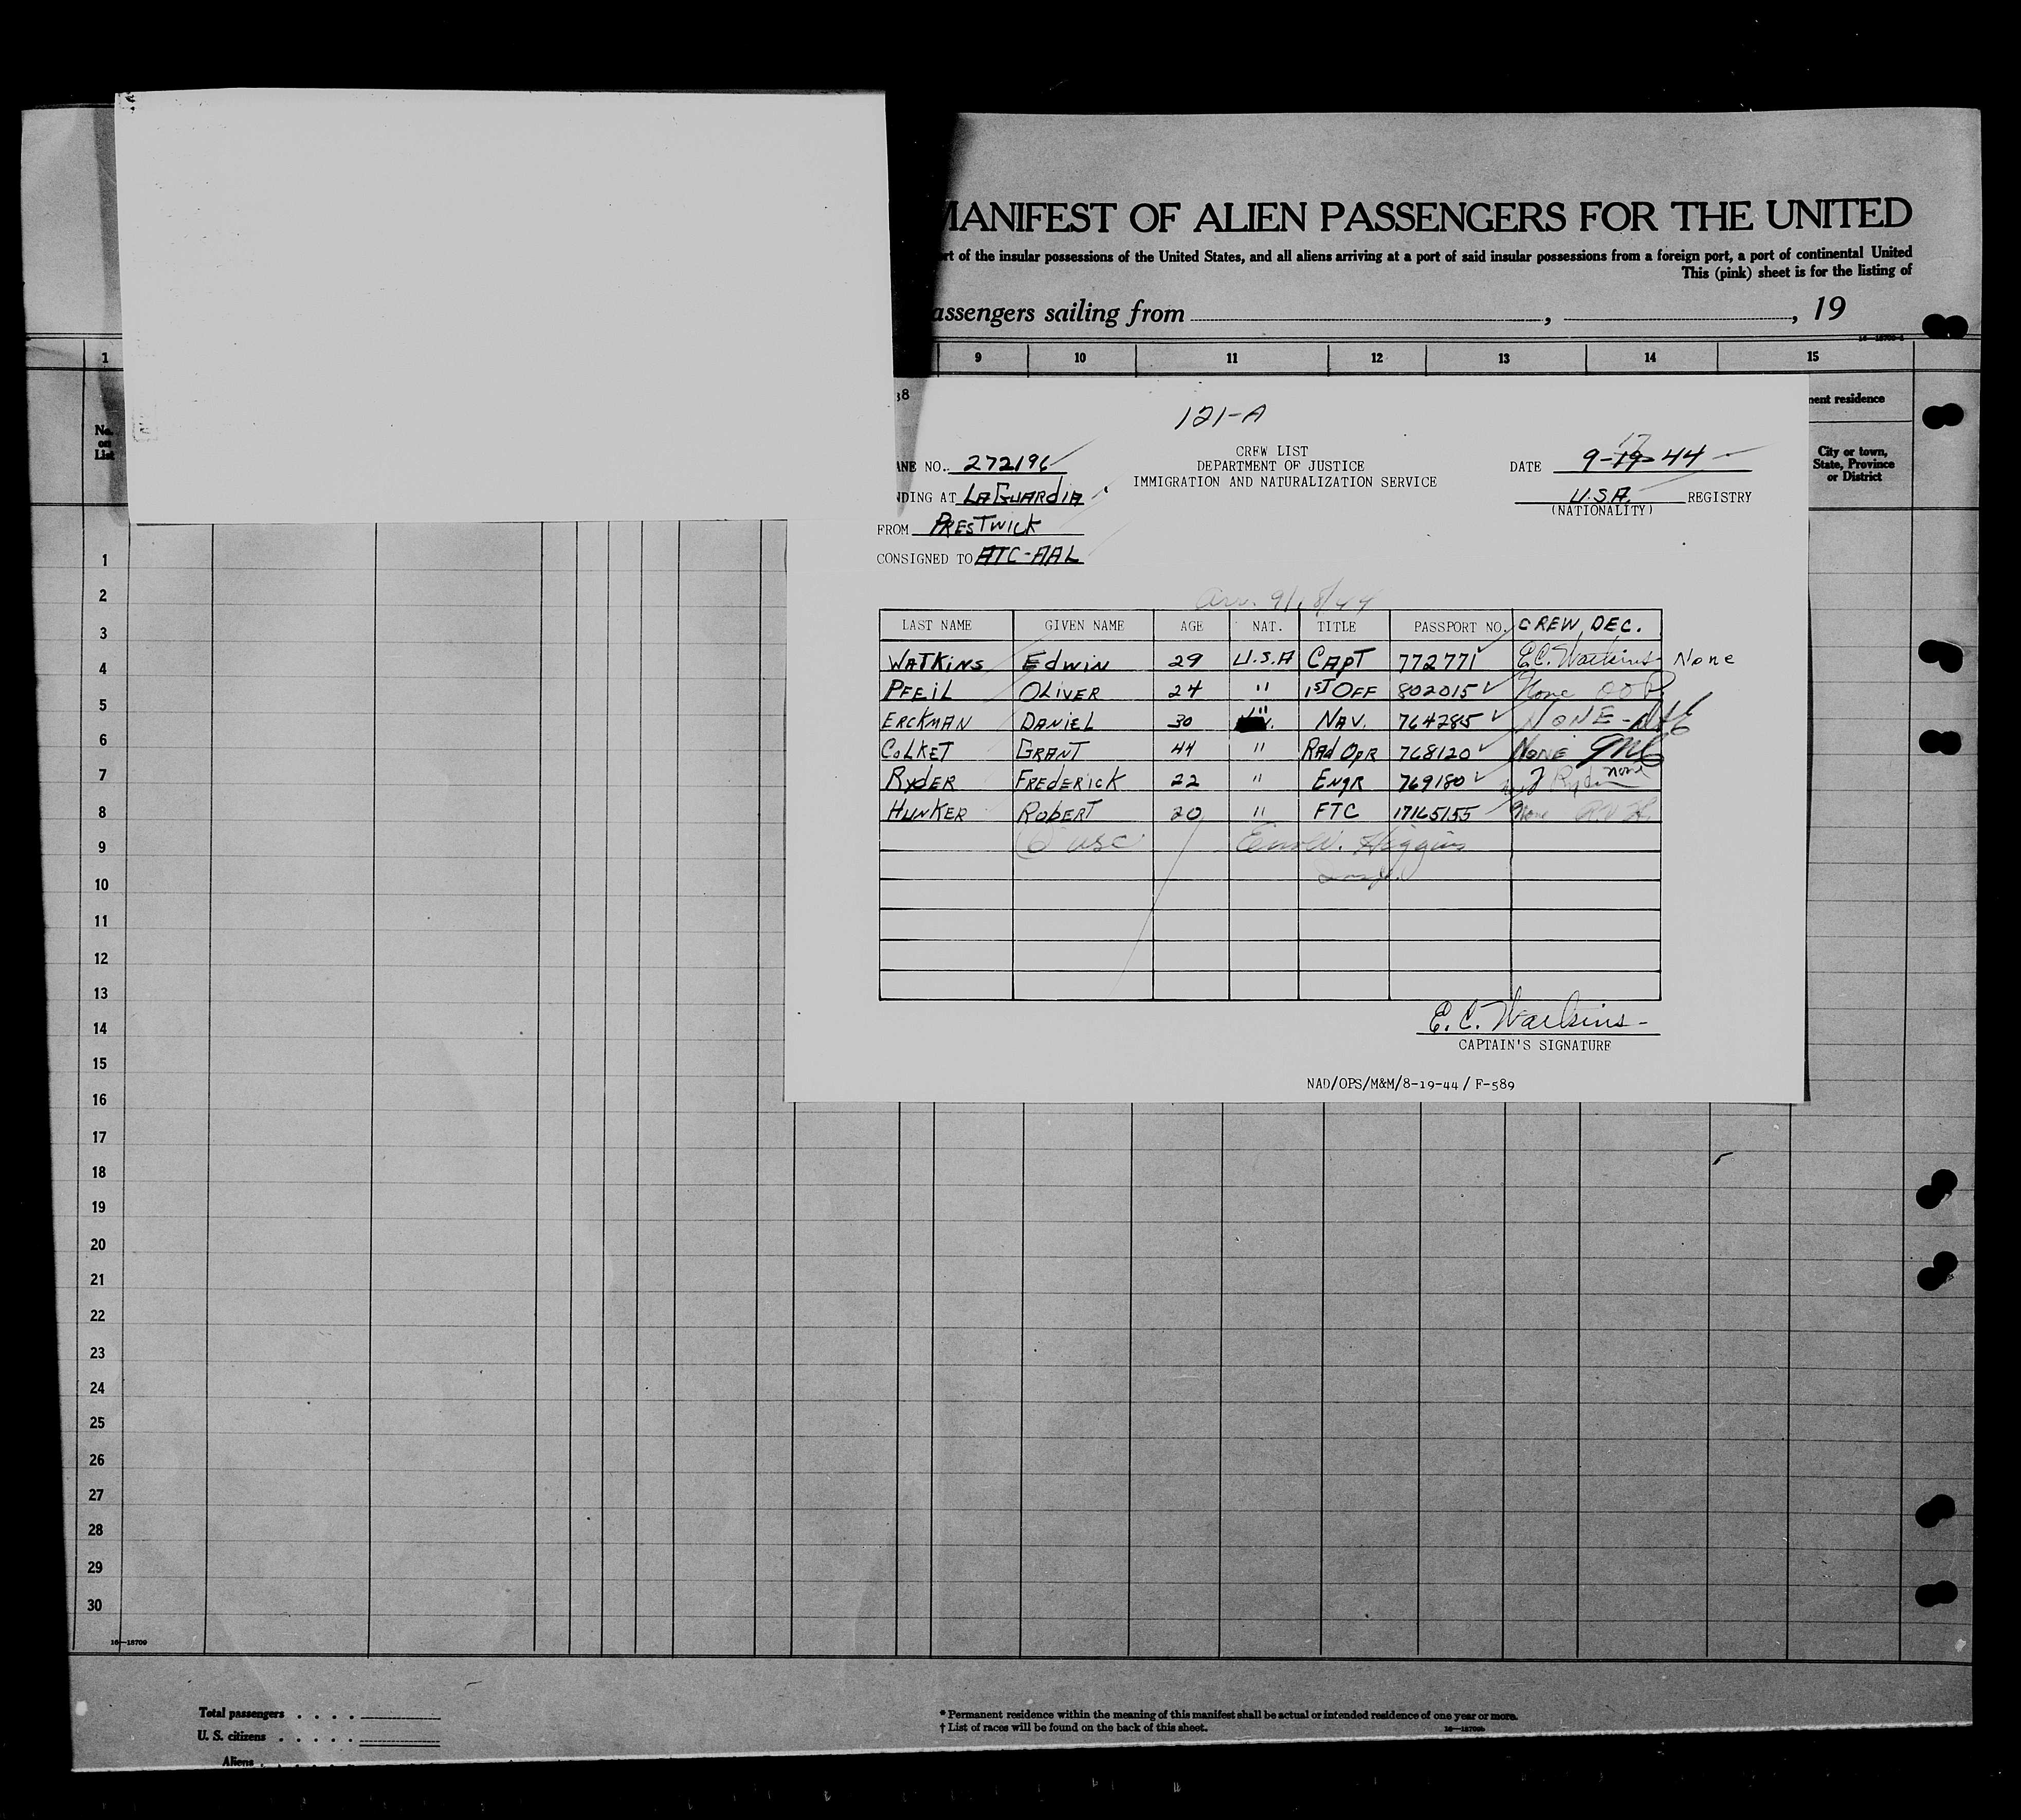 MANIFEST OF ALIEN PASSENGERS FOR THE UNITED
of the insular possessions of the United States, and all aliens arriving at a port of said insular possessions from a foreign port, a port of continental United
This (pink) sheet is for the listing of
assengers sailing from , , 19
1 9 10 11 12 13 14 15
No. on List
residence
City or town, State, Province or District
121-A
CREW LIST
DEPARTMENT OF JUSTICE
IMMIGRATION AND NATURALIZATION SERVICE
ANE NO. 272196
NDING AT LAGUARDIA
FROM PRESTWICK
CONSIGNED TO ATC-AAL
17
DATE 9-19-44
U.S.A. REGISTRY
(NATIONALITY)
Arr. 9/18/44
LAST NAME GIVEN NAME AGE NAT. TITLE PASSPORT NO. CREW DEC.
WATKINS EDWIN 29 U.S.A CAPT 772771 E.C. Watkins None
PFEIL OLIVER 24 " 1ST OFF 802015 None OOP
ERCKMAN DANIEL 30 " NAV. 764285 NONE
COLKET GRANT 44 " RAD OPR 768120 NONE
RYDER FREDERICK 22 " ENGR 769180 Ryder none
HUNKER ROBERT 20 " FTC 17165155 None
6 USC Higgins
E. C. Watkins
CAPTAIN'S SIGNATURE
NAD/OPS/M&M/8-19-44 / F-589
1
2
3
4
5
6
7
8
9
10
11
12
13
14
15
16
17
18
19
20
21
22
23
24
25
26
27
28
29
30
16—18709
Total passengers
U. S. citizens
Aliens
* Permanent residence within the meaning of this manifest shall be actual or intended residence of one year or more.
† List of races will be found on the back of this sheet.